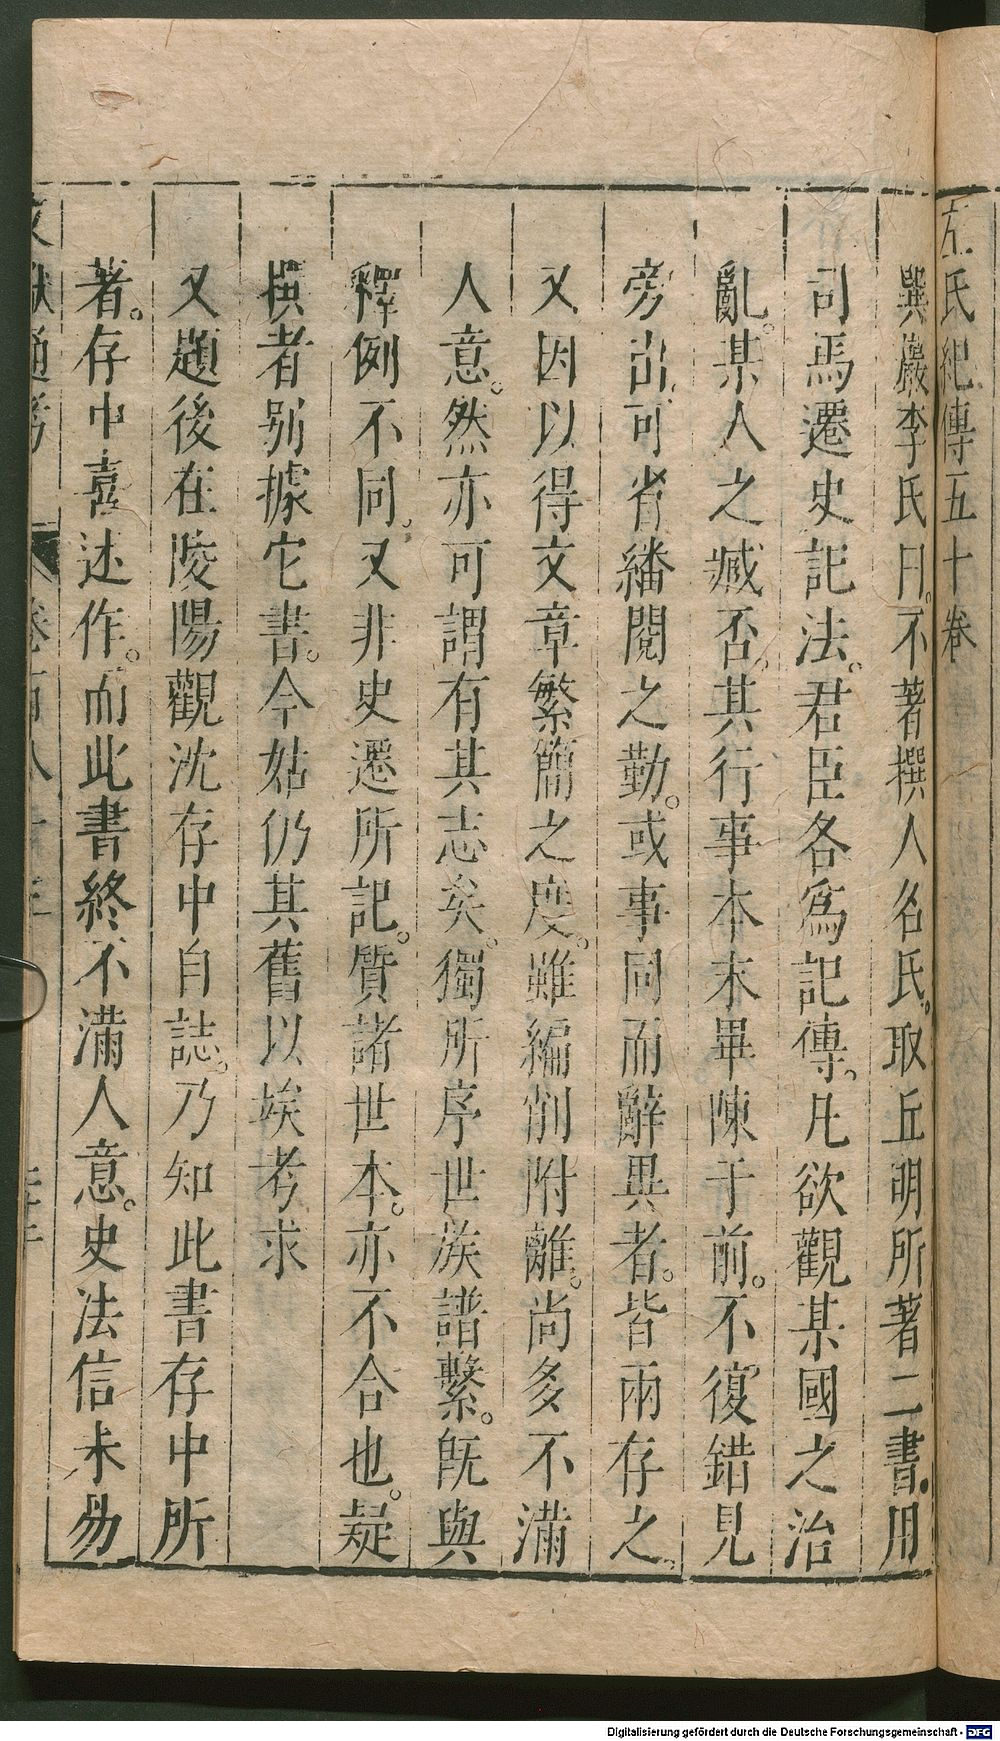 左氏紀傳五十卷
巽巖李氏曰。不著撰人名氏。取丘明所著二書。用
司馬遷史記法。君臣各爲記傳。凡欲觀某國之治
亂。某人之臧否。其行事本末畢陳于前。不復錯見
旁出。可省繙閱之勤。或事同而辭異者。皆兩存之。
又因以得文章繁簡之度。雖編削附離。尚多不滿
人意。然亦可謂有其志矣。獨所序世族譜繫。旣與
釋例不同。又非史遷所記。質諸世本。亦不合也。疑
撰者别據它書。今姑仍其舊以埃考求
又題後在陵陽觀沈存中自誌。乃知此書存中所
著。存中喜述作。而此書終不滿人意。史法信未易
文獻通考 卷百八十三
Digitalisierung gefördert durch die Deutsche Forschungsgemeinschaft - DFG